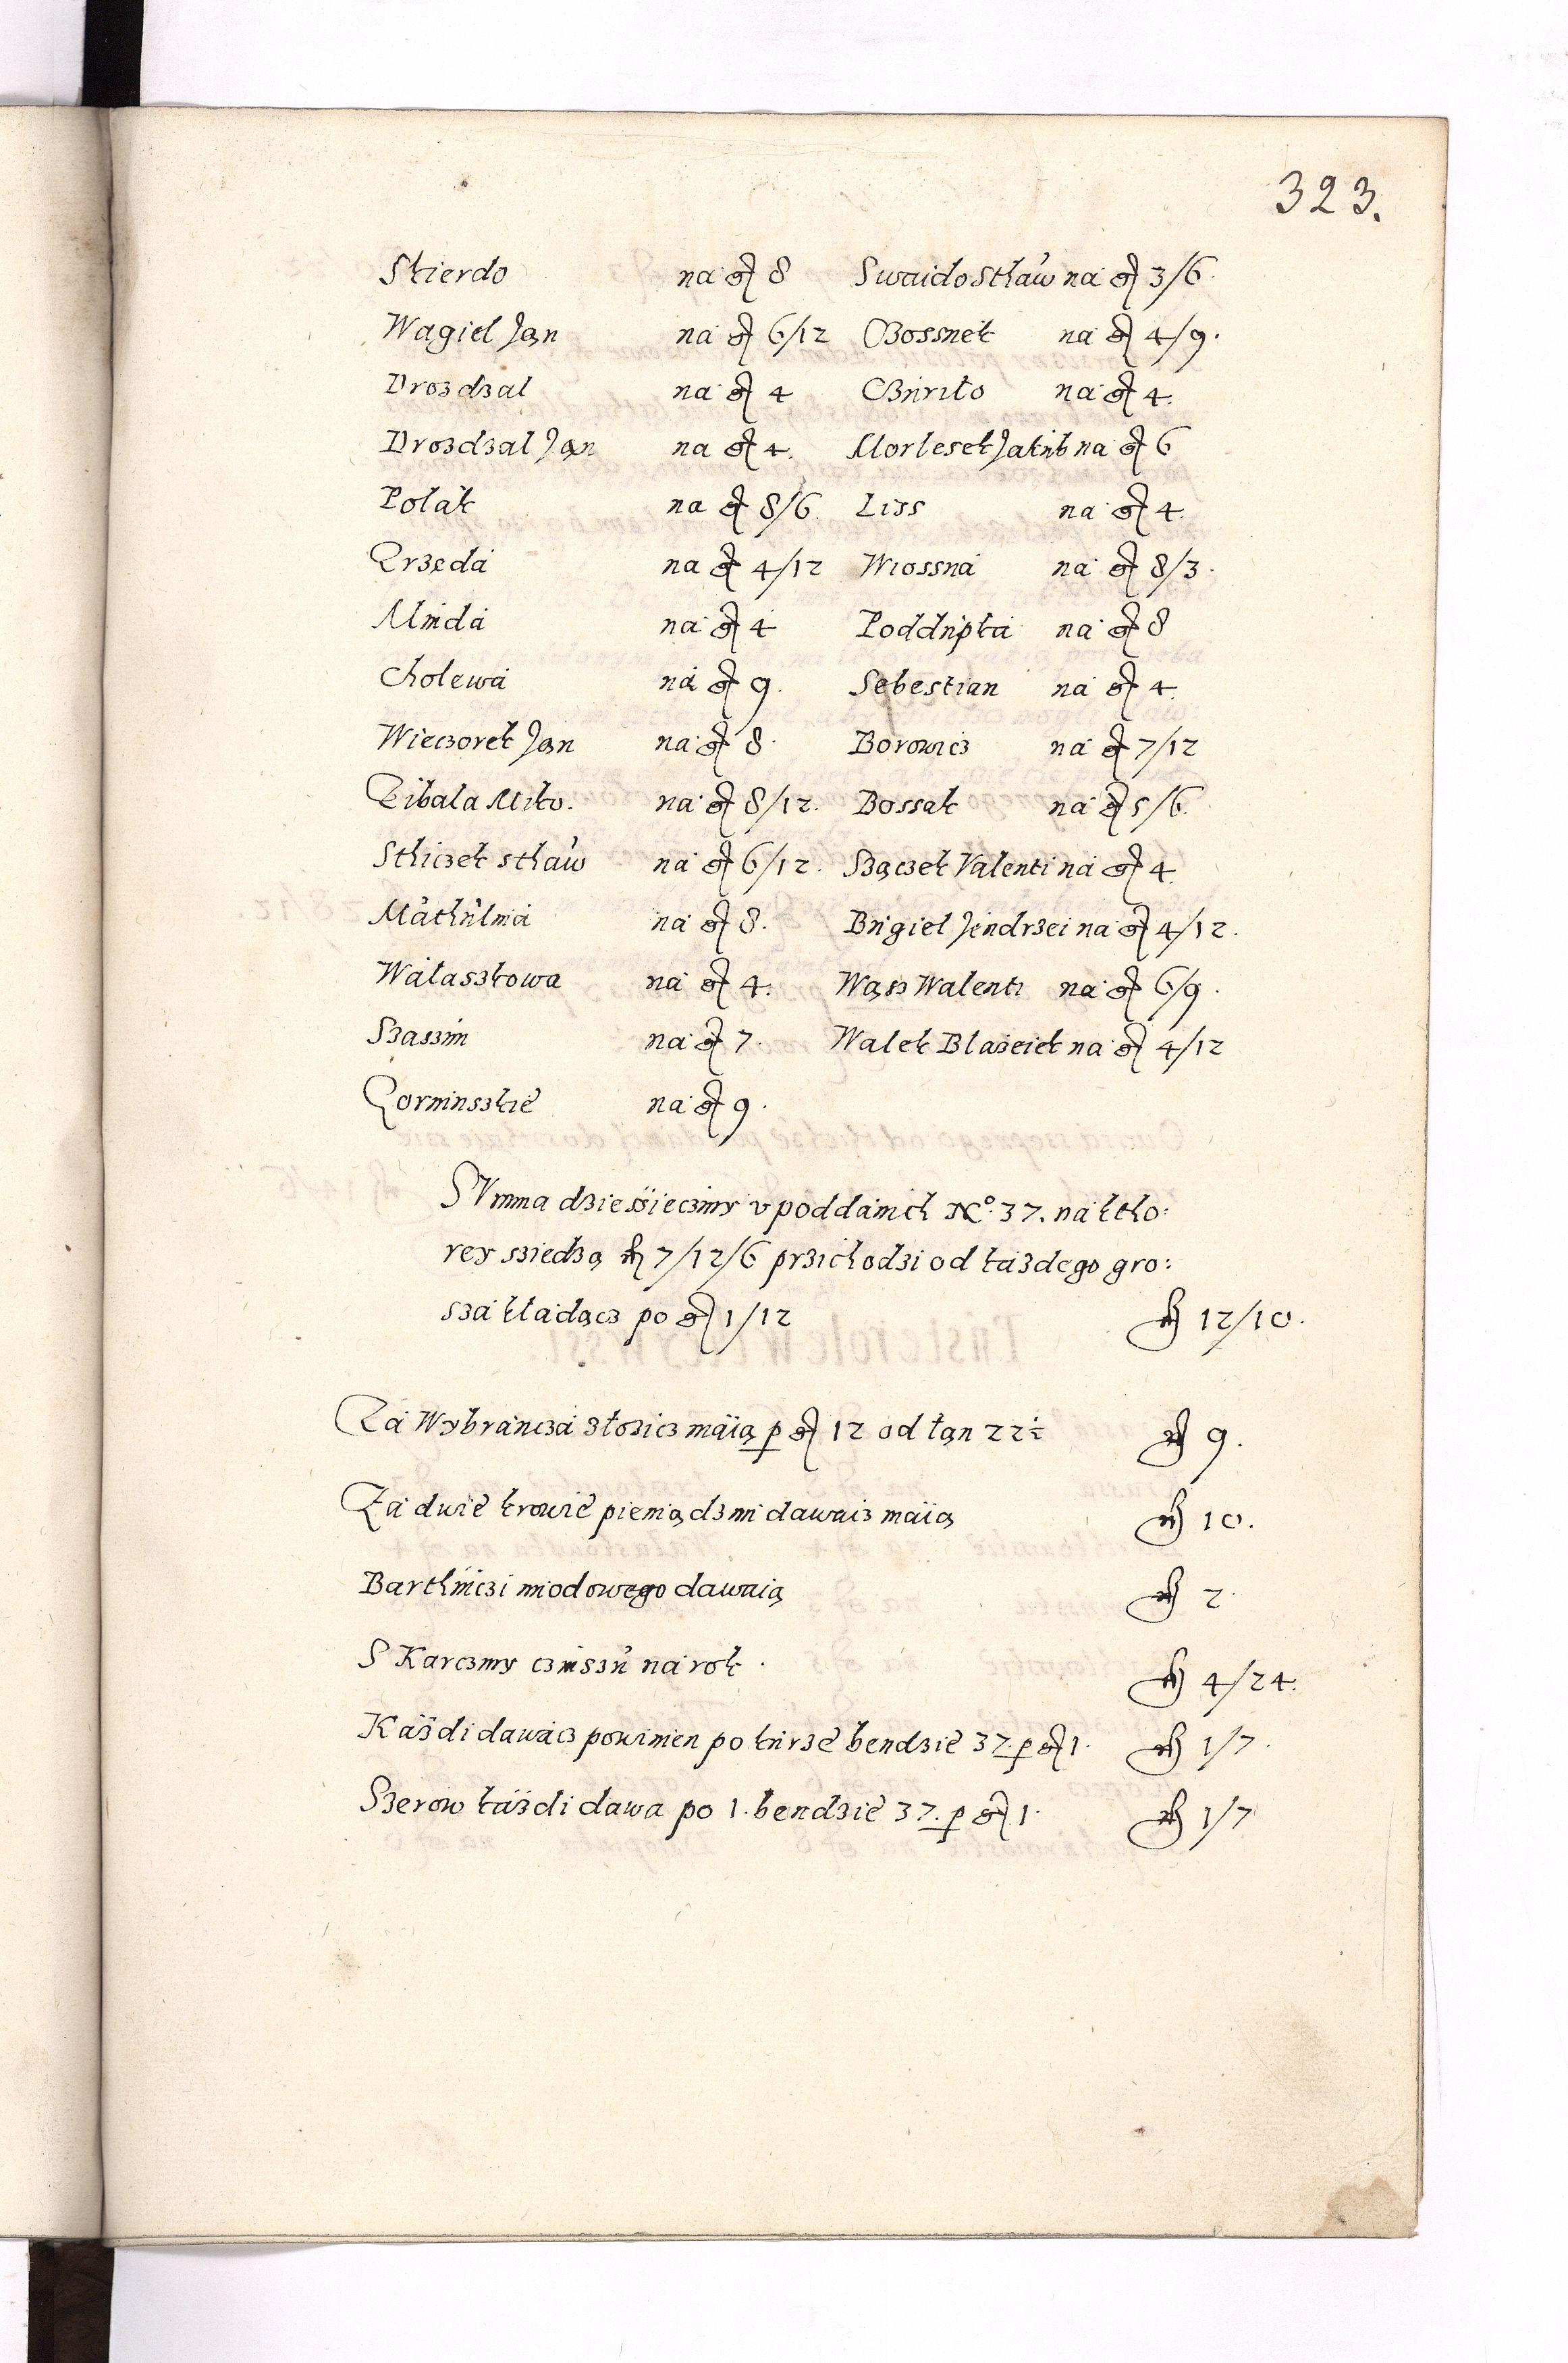 323.
Skierdo na gr 8 Swaido Sthaẃ na gr 3/6.
Wagiel Jan na gr 6/12 Bossnek na gr 4/9.
Drozdzal na gr 4 na gr 4.
Drozdzal Jan na gr 4. Morlesek Jakub na gr 6
Polak na gr 8/6. Liss na gr 4.
na gr 4/12 Wiossna na gr 8/3.
na gr 4 Poddupka na gr 8
Cholewa na gr 9. Sebestian na gr 4.
Wieczorek Jan na gr 8. Borowicz na gr 7/12
Miko. na gr 8/12. Bossak na gr 5/6.
Sthiczek sthaẃ na gr 6/12. Szączek Valenti na gr 4.
Mathulina na gr 8. Bugiel Jendrzei na gr 4/12.
Walaszkowa na gr 4. Wąss Walenti na gr 6/9.
Szaszin na gr 7. Walek Blazeiek na gr 4/12
na gr 9.
SVmma dziessiecziny v poddanich No. 37. na ktho:
rey sziedzą fl 7/12/6 przichodzi od kazdego gro:
sza kładącz po gr 1/12 fl 12/10.
Za Wybrancza złozicz maią p gr 12 od łan 22½ fl 9.
Za dwie krowie pieniądzmi dawacz maią fl 10.
Barthniczi miodowego dawaią fl 2
S Karczmy czinszu na rok. fl 4/24.
Każdi dawacz powinien po kurze bendzie 37. p gr 1. fl 1/7.
Szerow każdi dawa po 1. bendzie 37. p gr 1. fl 1/7